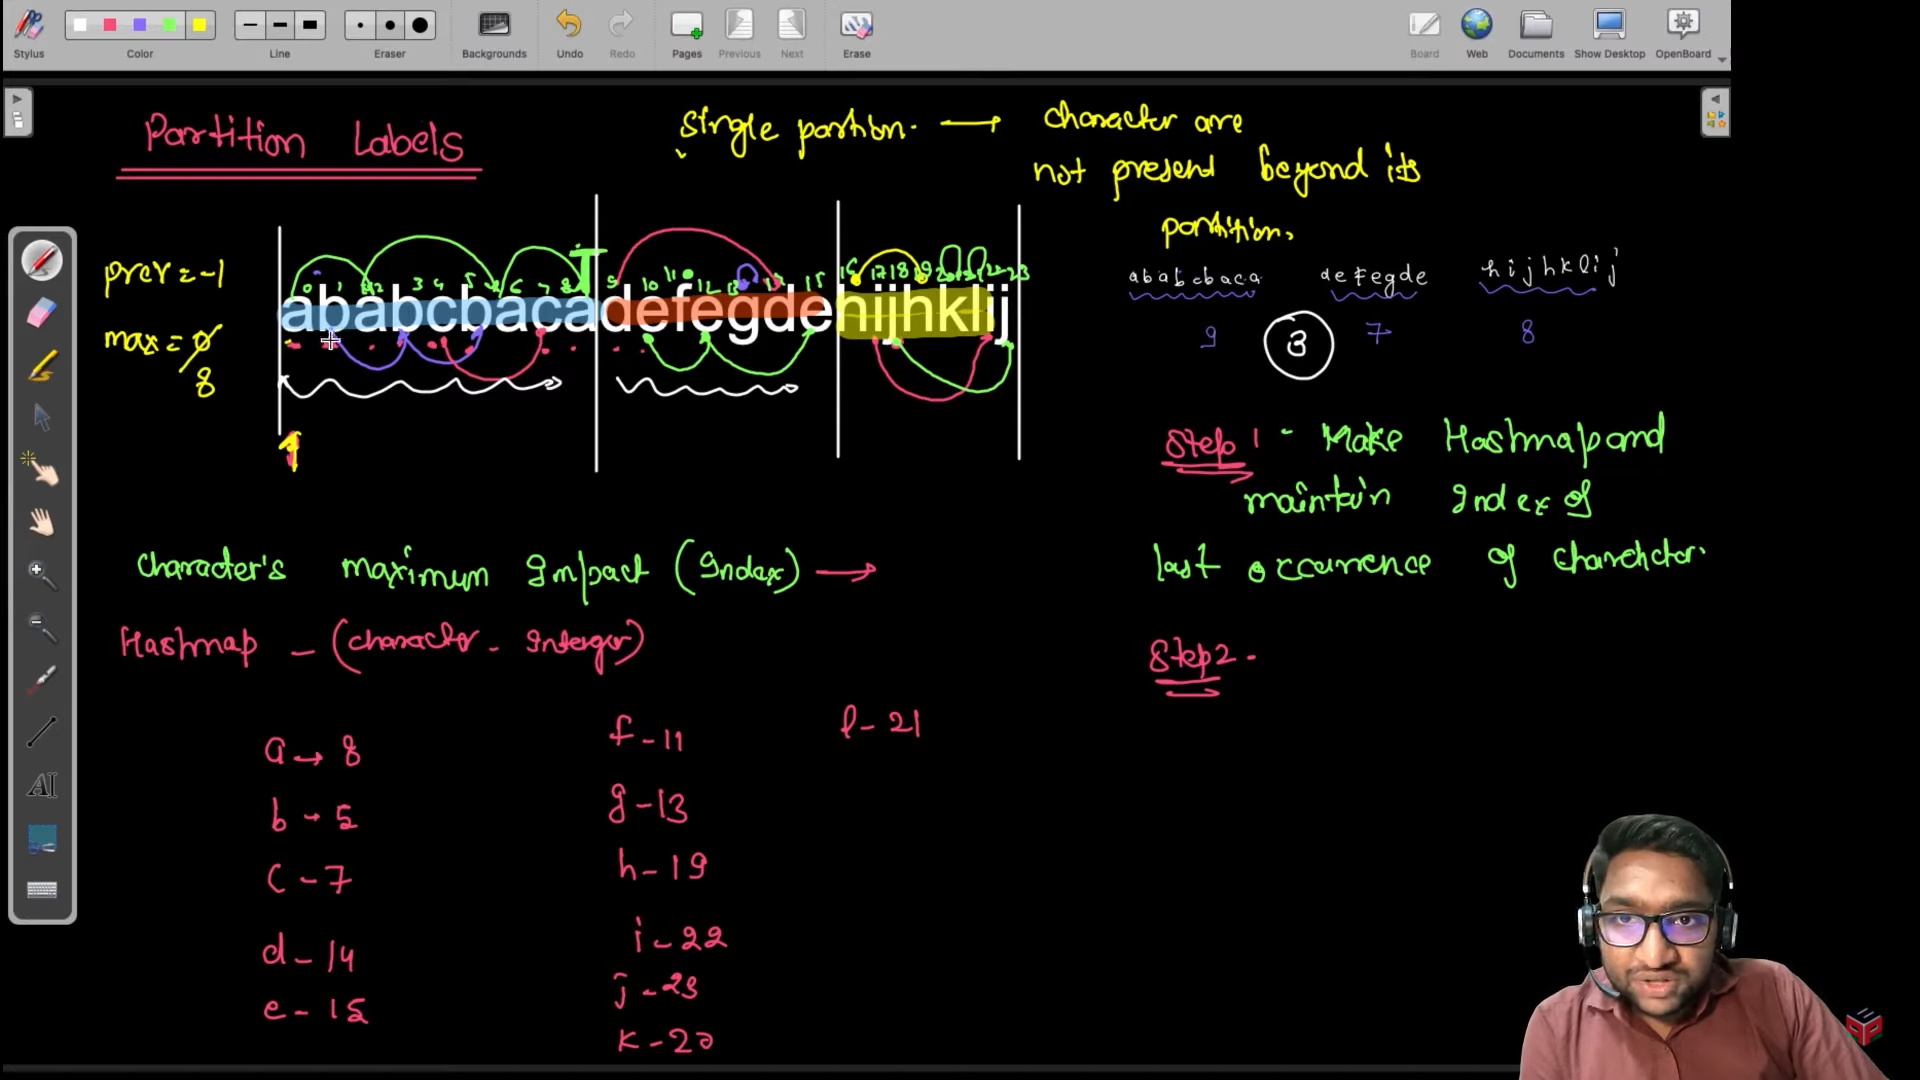 Stylus
Color
Line
Eraser
Backgrounds
Undo
Redo
Pages
Previous
Next
Erase
Board
Web
Documents
Show Desktop
OpenBoard
Partition Labels
single partion. → character are
not present beyond its
partition.
prev = -1
max = 0
8
0 1 2 3 4 5 6 7 8 9 10 11 12 13 15 16 17 18 19 23
ababcbacadefegdehijhklij
ababcbaca defegde hijhklij
9 3 7 8
Step 1 - Make Hashmap and
maintain Index of
last occurrence of
Step 2 -
character's maximum Impact (Index) →
Hashmap - (character - Interger)
a → 8
b - 5
c - 7
d - 14
e - 15
f - 11
g - 13
h - 19
i - 22
j - 23
k - 20
l - 21
AI